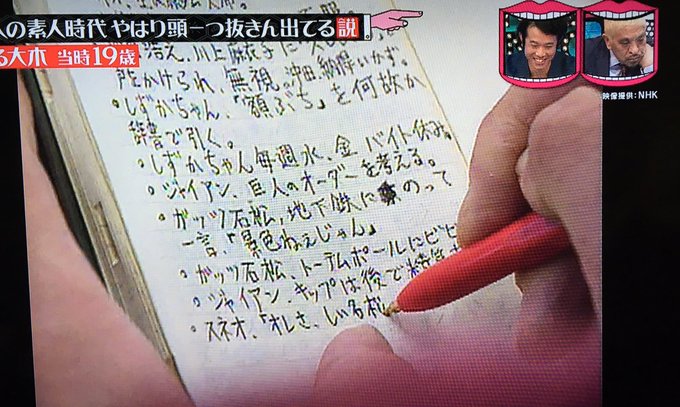 の素人時代 やはり頭一つ抜きん出てる説
る大木 当時19歳
映像提供:NHK
声をかけられ、無視
しずかちゃん、「額ぶち」を何故か
辞書で引く。
しずかちゃん毎週水、金バイト休み。
ジャイアン、巨人のオーダーを考える。
ガッツ石松、地下鉄にのって
一言、「景色ねぇじゃん」
ガッツ石松、トーテムポールにビビ
ジャイアン、キップは後で精算
スネオ、「オレさ、しい名札